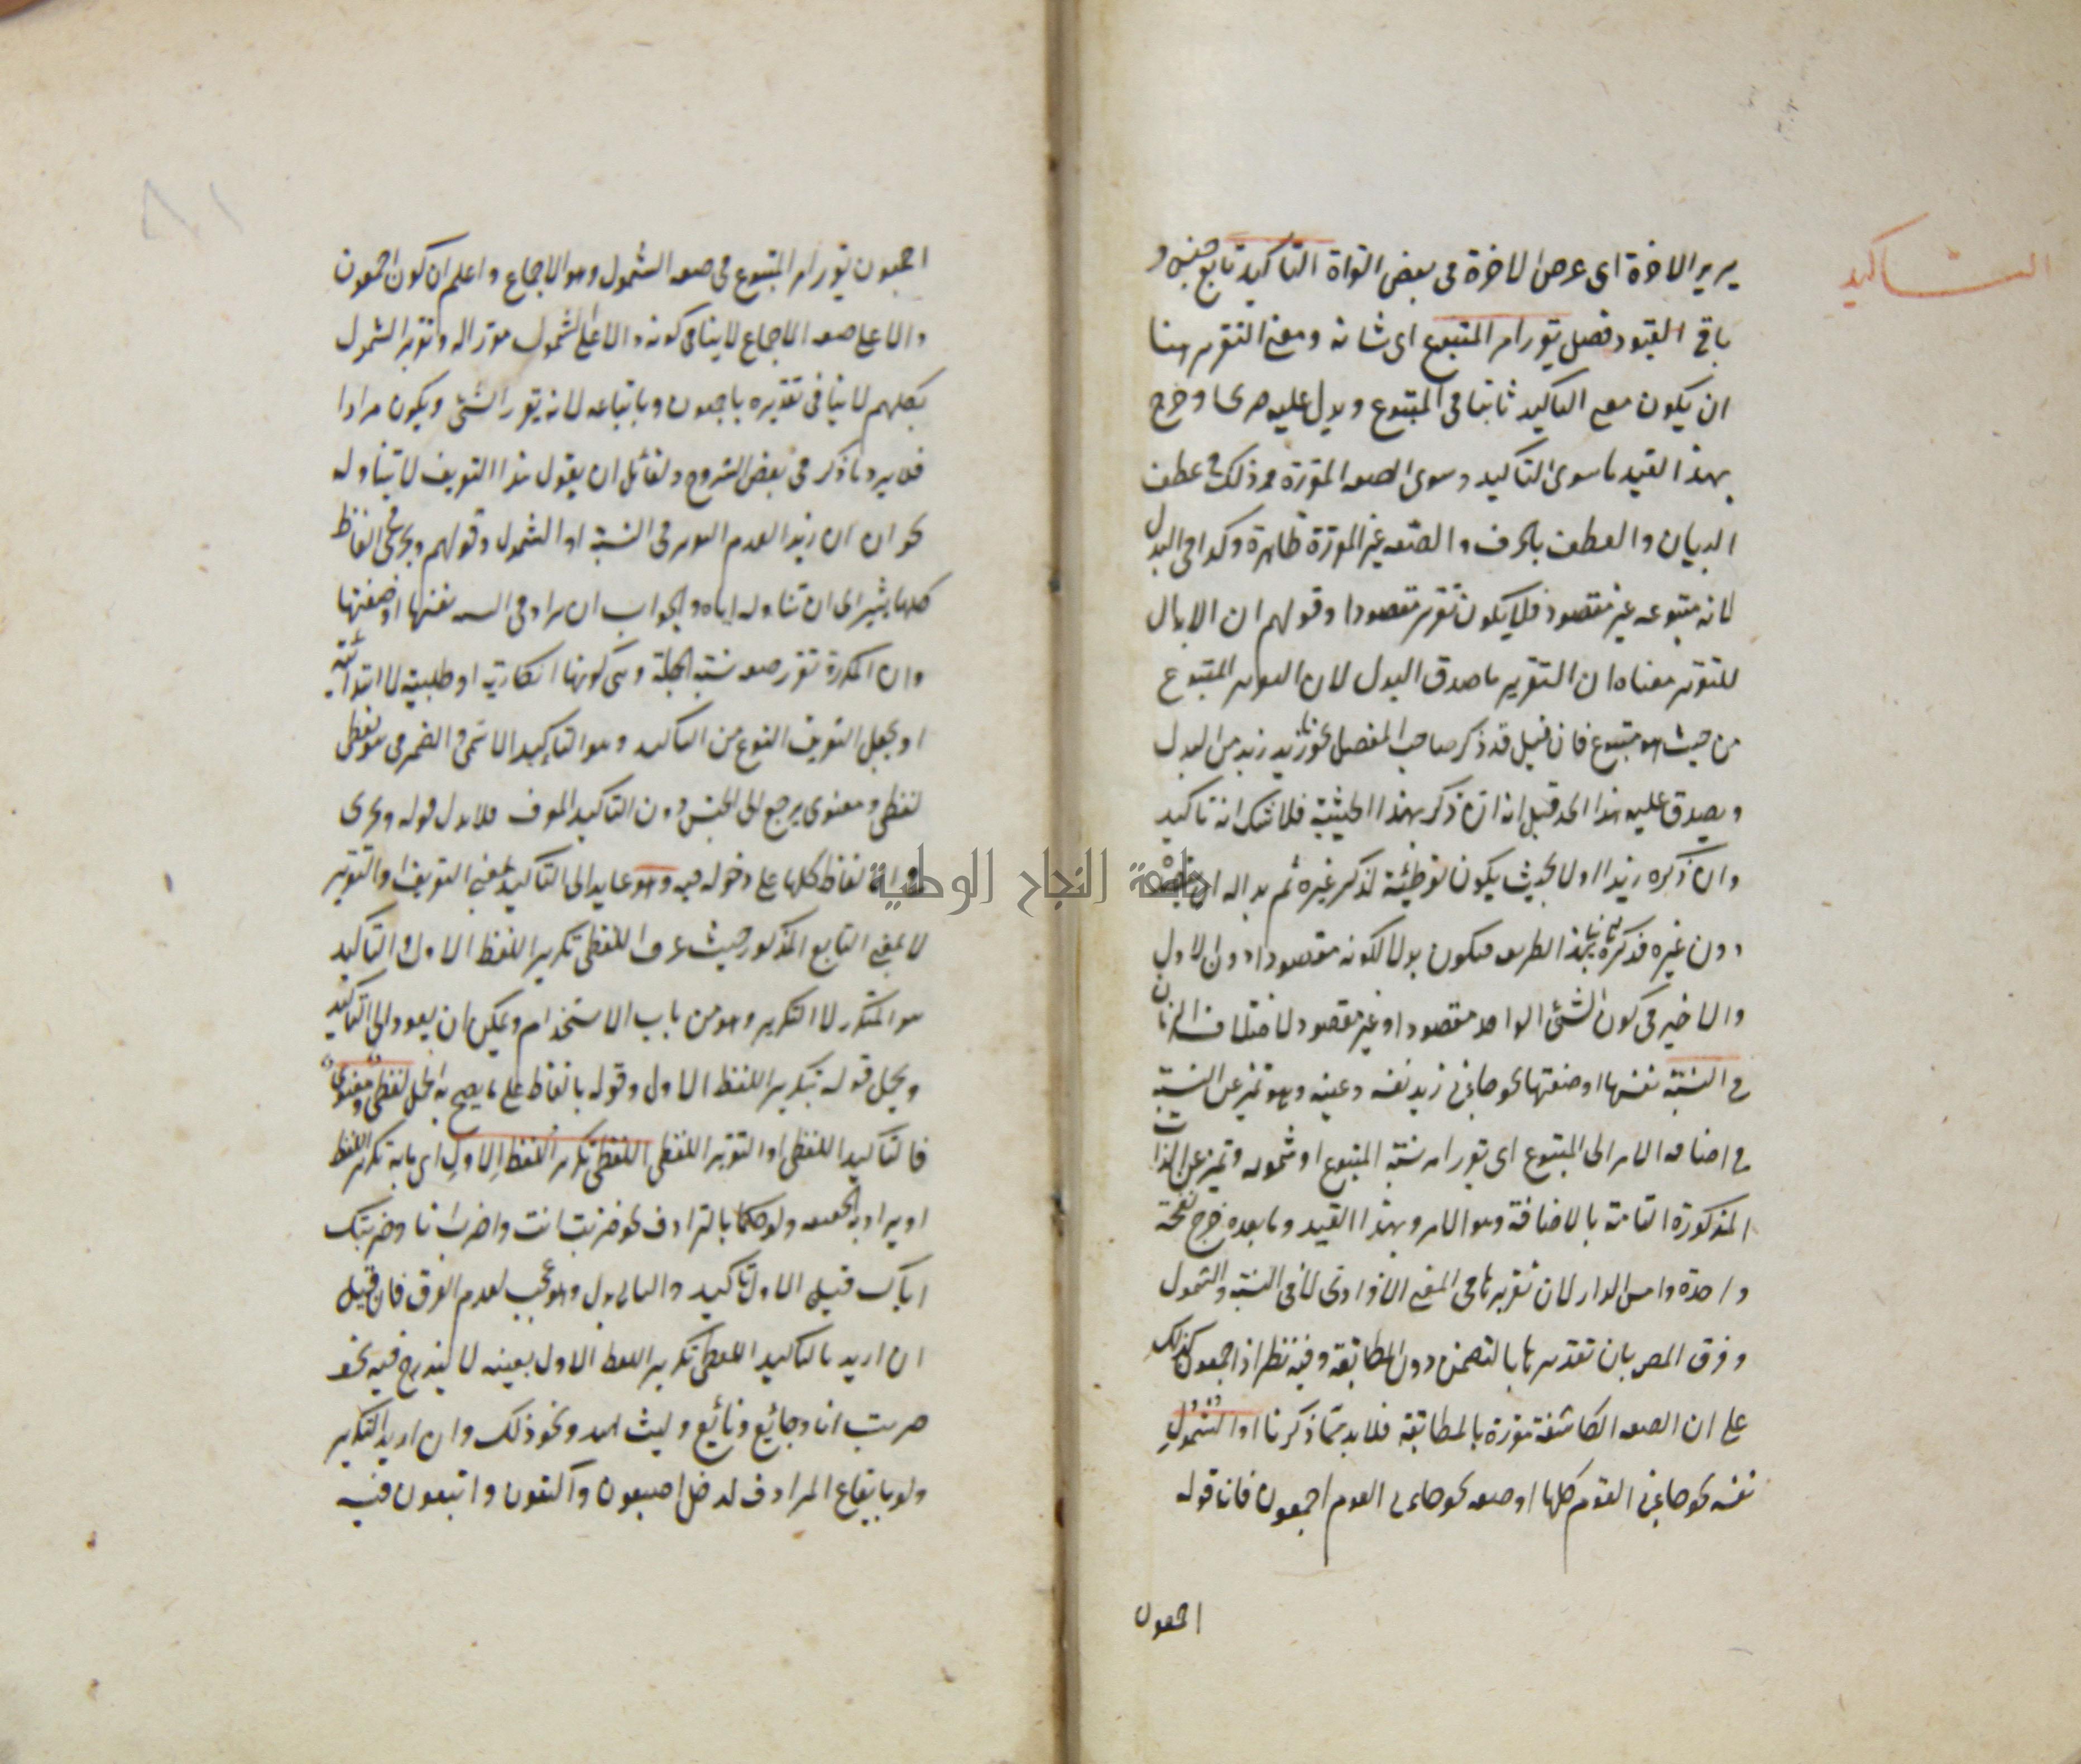 التاكيد
يريد الاخرة اى عرض الاخرة فى بعض القراة التاكيد تابع جنس و
باقى القيود فصل يقرر امر المتبوع اى شانه ومعنى التقرير هنا
ان يكون معنى التاكيد ثابتا فى المتبوع ويدل عليه صريحا وخرج
بهذا القيد ما سوى التاكيد وسوى الصفة المقررة وذلك فى عطف
البيان والعطف بالحرف والصفة غير المقررة ظاهرة وكذا فى البدل
لانه متبوعه غير مقصود فلا يكون تقريره مقصودا وقولهم ان الابدال
للتقرير معناه ان التقرير ما صدق البدل لان المتبوع
من حيث هو متبوع فان قيل قد ذكر صاحب المفصل نحو زيد زيد من البدل
ويصدق عليه هذا الحد قيل انه ان ذكر بهذا الحيثية فلا شك انه تاكيد
وان ذكره زيد اولا بحيث يكون توطئية لذكر غيره ثم بدا له ان يقصده
دون غيره فذكره ثانيا بهذا الطريق فيكون بدلا لكونه مقصودا دون الاول
والاخير فى كون الشئ الواحد مقصودا وغير مقصود لاختلاف الزمان
فى النسبة نفسها او صفتها نحو جاءنى زيد نفسه وعينه وهو تميز عن النسبة
فى اضافة الامر الى المتبوع اى تقرر امر نسبة المتبوع او شموله وتميز عن الذات
المذكورة التامة بالاضافة وهو الامر وبهذا القيد وما بعده خرج نفخة
واحدة وامس الدابر لان تقريرها فى المعنى الافرادى لا فى النسبة والشمول
وفرق المصر بان تقريرها بالتضمن دون المطابقة وفيه نظر اذ اجمعون كذلك
على ان الصفة الكاشفة مقررة بالمطابقة فلابد مما ذكرنا او الشمول
نفسه نحو جاءنى القوم كلها او صفته نحو جاءنى القوم اجمعون فان قوله
اجمعون
اجمعون يقرر امر المتبوع فى صفة الشمول وهو الاجماع واعلم ان كون اجمعون
دالا على صفة الاجماع لا ينافى كونه دالا على الشمول مقررا له وتقرير الشمول
بكلهم لا ينافى تقريره باجمعون وباتباعه لانه يقرر الشئ ويكون مرادا
فلا يرد ما ذكر فى بعض الشروح ولقائل ان يقول هذا التعريف لا يتناوله
نحو ان ان زيدا لعدم التقرير فى النسبة او الشمول وقولهم ويجرى فى الفاظ
كلها يشير الى ان تناوله اياه والجواب ان مراد فى النسبة نفسها او صفتها
وان المكررة تقرر صفة نسبة الجملة وهى كونها انكارية او طلبية لا ابتدائية
او يجعل التعريف النوع من التاكيد وهو التاكيد الاسمى والضمير فى هو لفظى
لفظى ومعنوى يرجع الى الجنس دون التاكيد المعرف فلا يدل قوله ويجرى
فى الالفاظ كلها على دخوله فيه وهو عايد الى التاكيد بمعنى التعريف والتقرير
لا بمعنى التابع المذكور حيث عرف اللفظى تكرير اللفظ الاول والتاكيد
هو المتكرر لا التكرير وهو من باب الاستخدام ويمكن ان يعود الى التاكيد
ويحمل قوله بتكرير اللفظ الاول وقوله بالفاظ على ما يصح به الحمل لفظى ومعنوى
فالتاكيد اللفظى او التقرير اللفظى اللفظى تكرير اللفظ الاول اى ما به تكرير اللفظ
او يراد به الحقيقة ولو حكما بالترادف نحو ضربت انت واضرب انا وضربتك
اياك قيل الاول تاكيد والثانى بدل وهو عجب لعدم الفرق فان قيل
ان اريد بالتاكيد اللفظى تكرير اللفظ الاول بعينه لا يندرج فيه نحو
ضربت انا وجائع ونائع وليث اسد ونحو ذلك وان اريد التكرير
ولو بايقاع المرادف لدخل ابصعون واكتعون وابتعون فيه
٨١
جامعة النجاح الوطنية